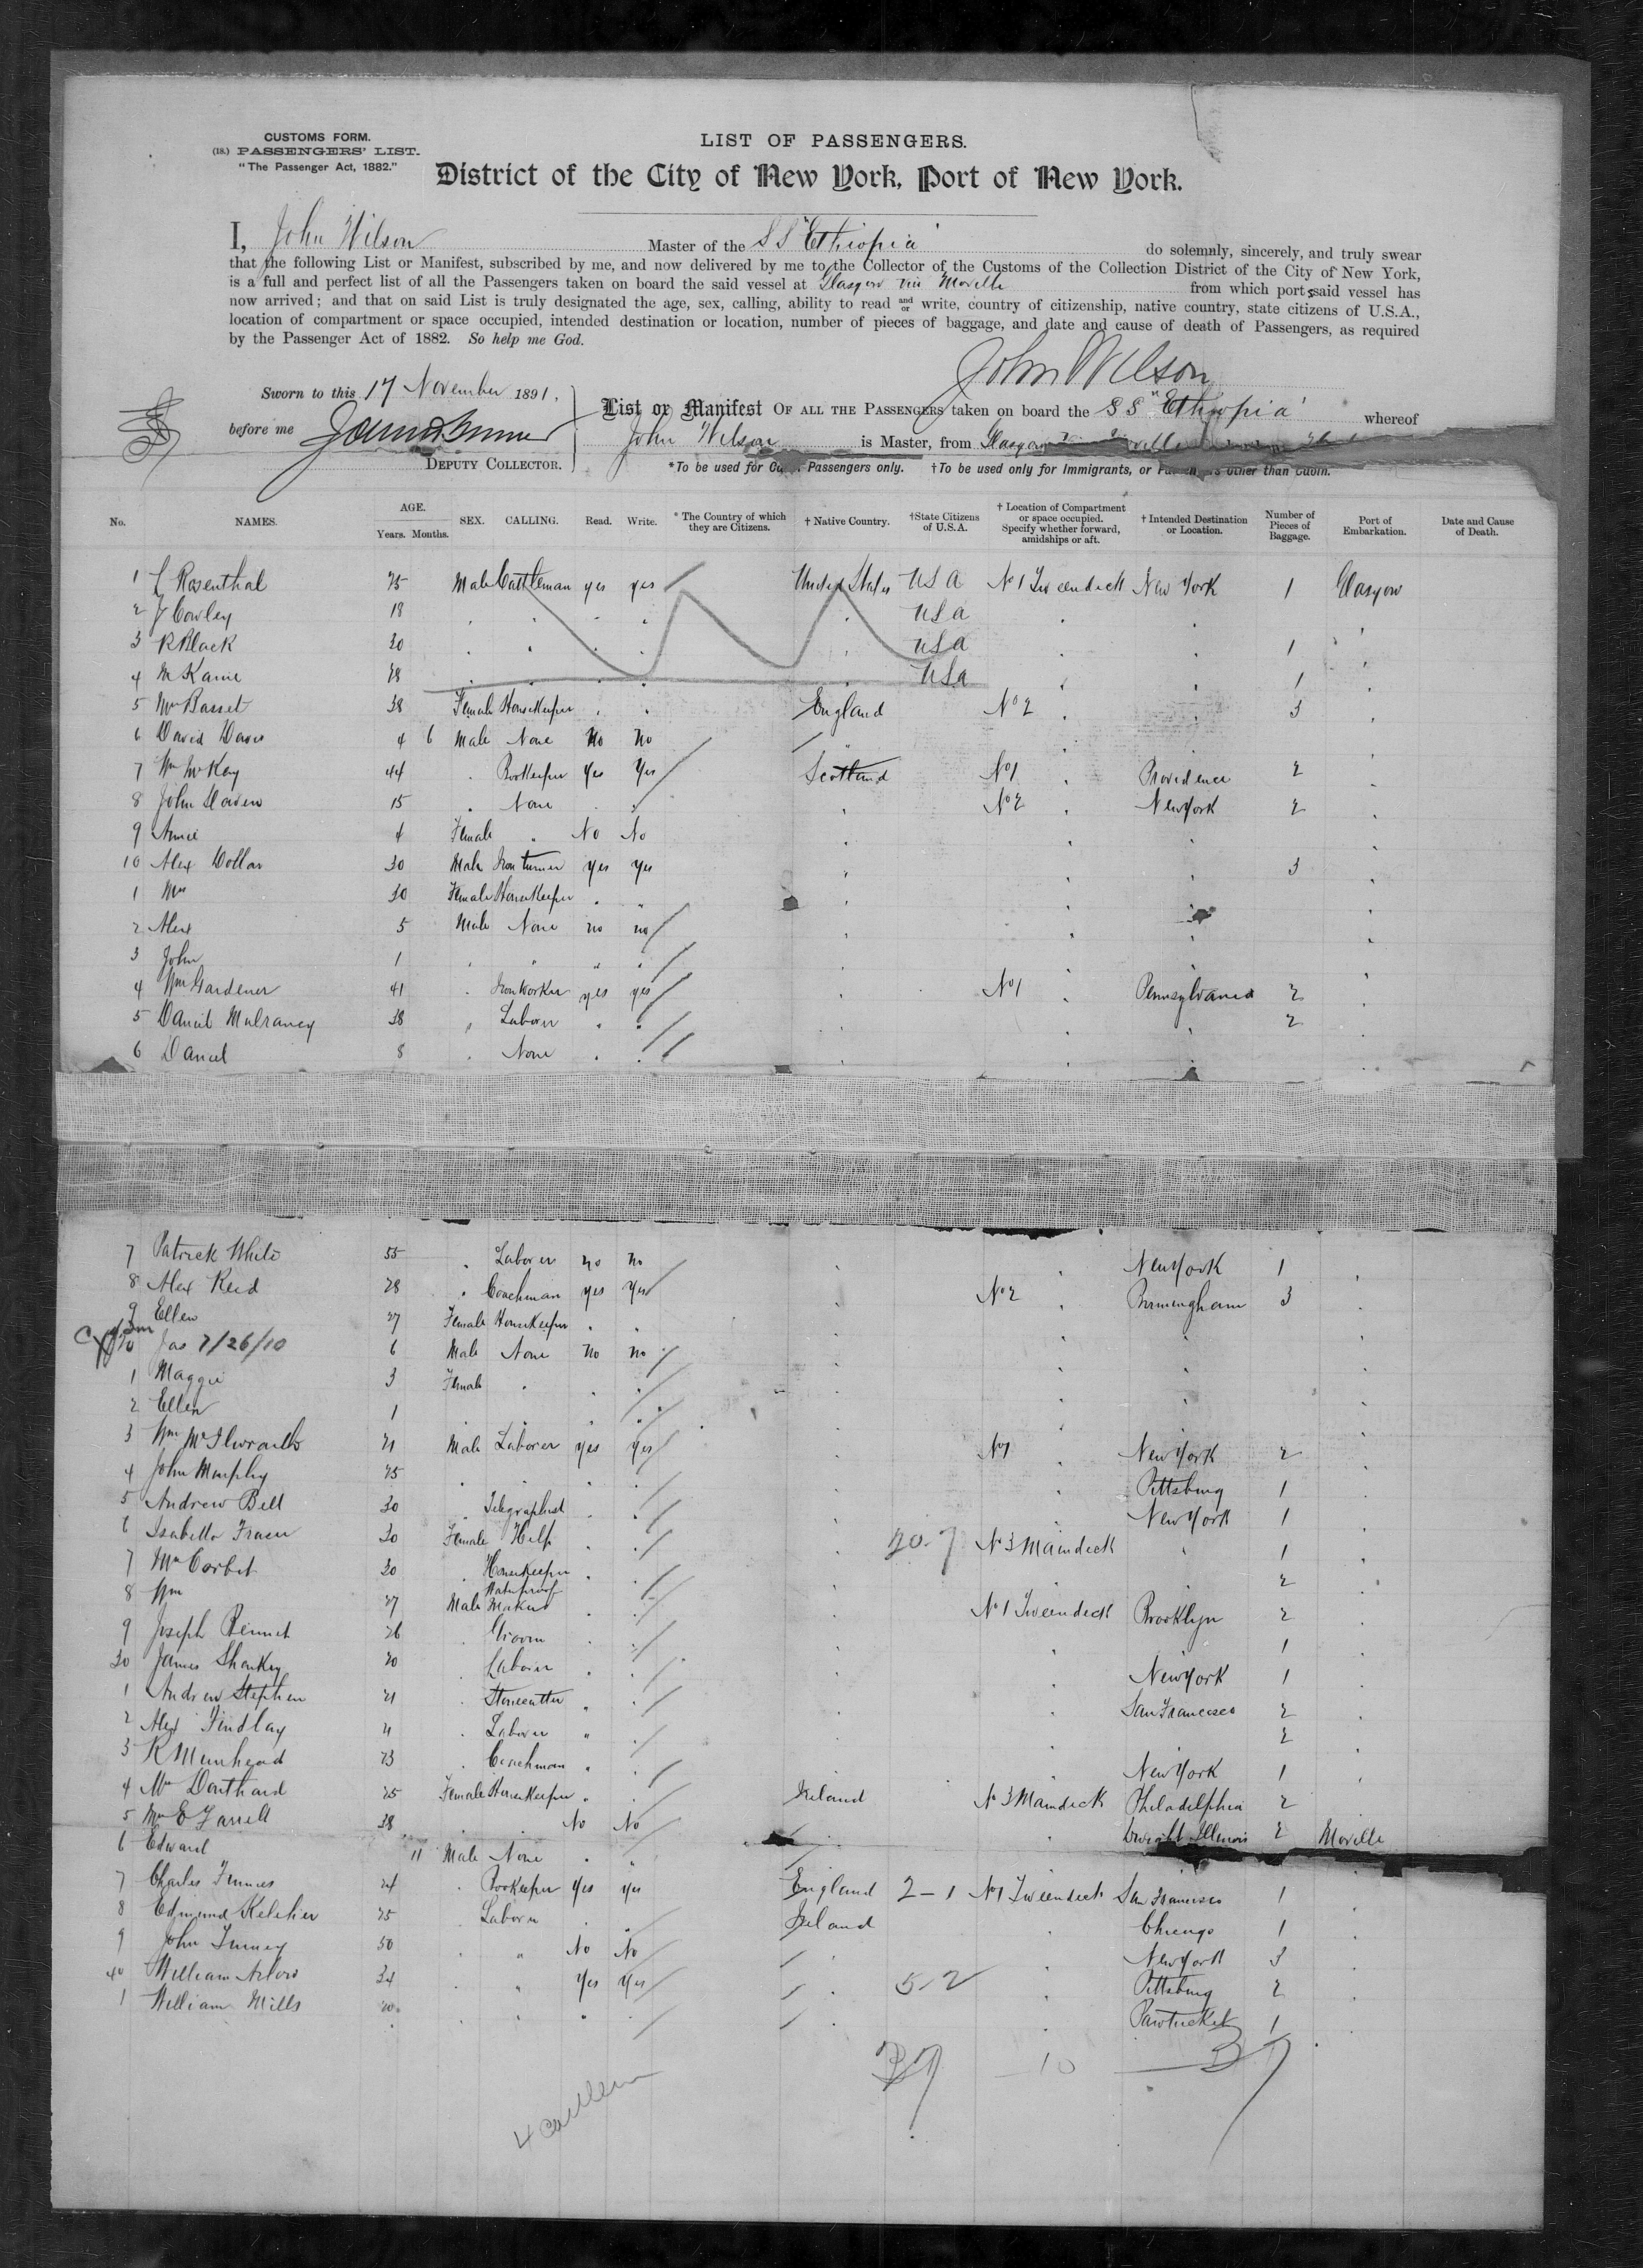 CUSTOMS FORM.
(18.) PASSENGERS' LIST.
"The Passenger Act, 1882."
LIST OF PASSENGERS.
District of the City of New York, Port of New York.
I, John Wilson Master of the SS "Ethiopia" do solemnly, sincerely, and truly swear
that the following List or Manifest, subscribed by me, and now delivered by me to the Collector of the Customs of the Collection District of the City of New York,
is a full and perfect list of all the Passengers taken on board the said vessel at Glasgow via Moville from which ports said vessel has
now arrived; and that on said List is truly designated the age, sex, calling, ability to read and or write, country of citizenship, native country, state citizens of U.S.A.,
location of compartment or space occupied, intended destination or location, number of pieces of baggage, and date and cause of death of Passengers, as required
by the Passenger Act of 1882. So help me God.
John Wilson
Sworn to this 17 November 1891,
before me
DEPUTY COLLECTOR.
List or Manifest OF ALL THE PASSENGERS taken on board the SS "Ethiopia" whereof
John Wilson is Master, from Glasgow
*To be used for Passengers only. †To be used only for Immigrants, or Passengers other than Cabin.
No. NAMES. AGE. Years. Months. SEX. CALLING. Read. Write. * The Country of which they are Citizens. † Native Country. †State Citizens of U.S.A. † Location of Compartment or space occupied. Specify whether forward, amidships or aft. † Intended Destination or Location. Number of Pieces of Baggage. Port of Embarkation. Date and Cause of Death.
1 Rosenthal 25 Male Cattleman yes yes United States USA No 1 Tweendeck New York 1 Glasgow
2 J Cowley 18 " " " " " USA " "
3 R Black 20 " " " " " USA " " 1 "
4 M Kane 28 " " " " " USA " " 1 "
5 Mrs Basset 38 Female Housekeeper " " England No 2 " " 3 "
6 David Davis 4 6 Male None No No " " "
7 Wm McKay 44 " Bookeeper Yes Yes Scotland No 1 " Providence 2 "
8 John 15 " None " " " No 2 " New York 2 "
9 Annie 4 Female " No No " " " "
10 Alex Dollar 30 Male Iron turner Yes Yes " " " 3 "
1 Mrs 30 Female Housekeeper " " " " "
2 Alex 5 Male None no no " " " "
3 John 1 " " " " " " "
4 Wm Gardener 41 " Ironworker yes yes " No 1 " Pennsylvania 2 "
5 Daniel Mulraney 38 " Laborer " " " " " 2 "
6 Daniel 8 " None " " " " "
7 Patrick White 55 " Laborer no no " " New York 1
8 Alex Reid 28 " Coachman yes Yes " No 2 " Birmingham 3 "
9 Ellen 27 Female Housekeeper " " " " " "
10 Jas 7/26/10 6 Male None no no " " " "
1 Maggie 3 Female " " " " " "
2 Ellen 1 " " " " " " "
3 Wm McIlwraith 21 Male Laborer yes yes " No 1 " New York 2 "
4 John Murphy 25 " " " " " " Pittsburg 1 "
5 Andrew Bell 30 " Telegraphist " " " New York 1 "
6 Isabella Fraser 30 Female Help " " " 20-7 No 3 Maindeck " 1 "
7 Mrs Corbet 30 " Housekeeper " " " " 2
8 Wm 27 Male Waterproof Maker " " No 1 Tweendeck Brooklyn 2 "
9 Joseph Bennet 26 " Groom " " " " " 1
30 James Sharkey 20 " Laborer " " " " New York 1 "
1 Andrew Stephen 21 " Stonecutter " " " " San Francisco 2 "
2 Alex Findlay 21 " Laborer " " " " " 2 "
3 R Muirhead 23 " Coachman " " New York 1 "
4 Mrs 25 Female Housekeeper " " Ireland No 3 Maindeck Philadelphia 2 "
5 Mrs E Farrell 38 " " No No " " Dwight Illinois 2 Moville
6 Edward 11 Male None " "
7 Charles 24 " Bookeeper Yes Yes England 2-1 No 1 Tweendeck San Francisco 1 "
8 Edmund Kelleher 25 " Laborer " " Ireland " Chicago 1 "
9 John 50 " " No No " " New York 3 "
40 William Arlow 34 " " Yes Yes " 5-2 " Pittsburg 2 "
1 William Mills 20 " " " " " " Pawtucket 1 "
37 10 37
4 cattlemen